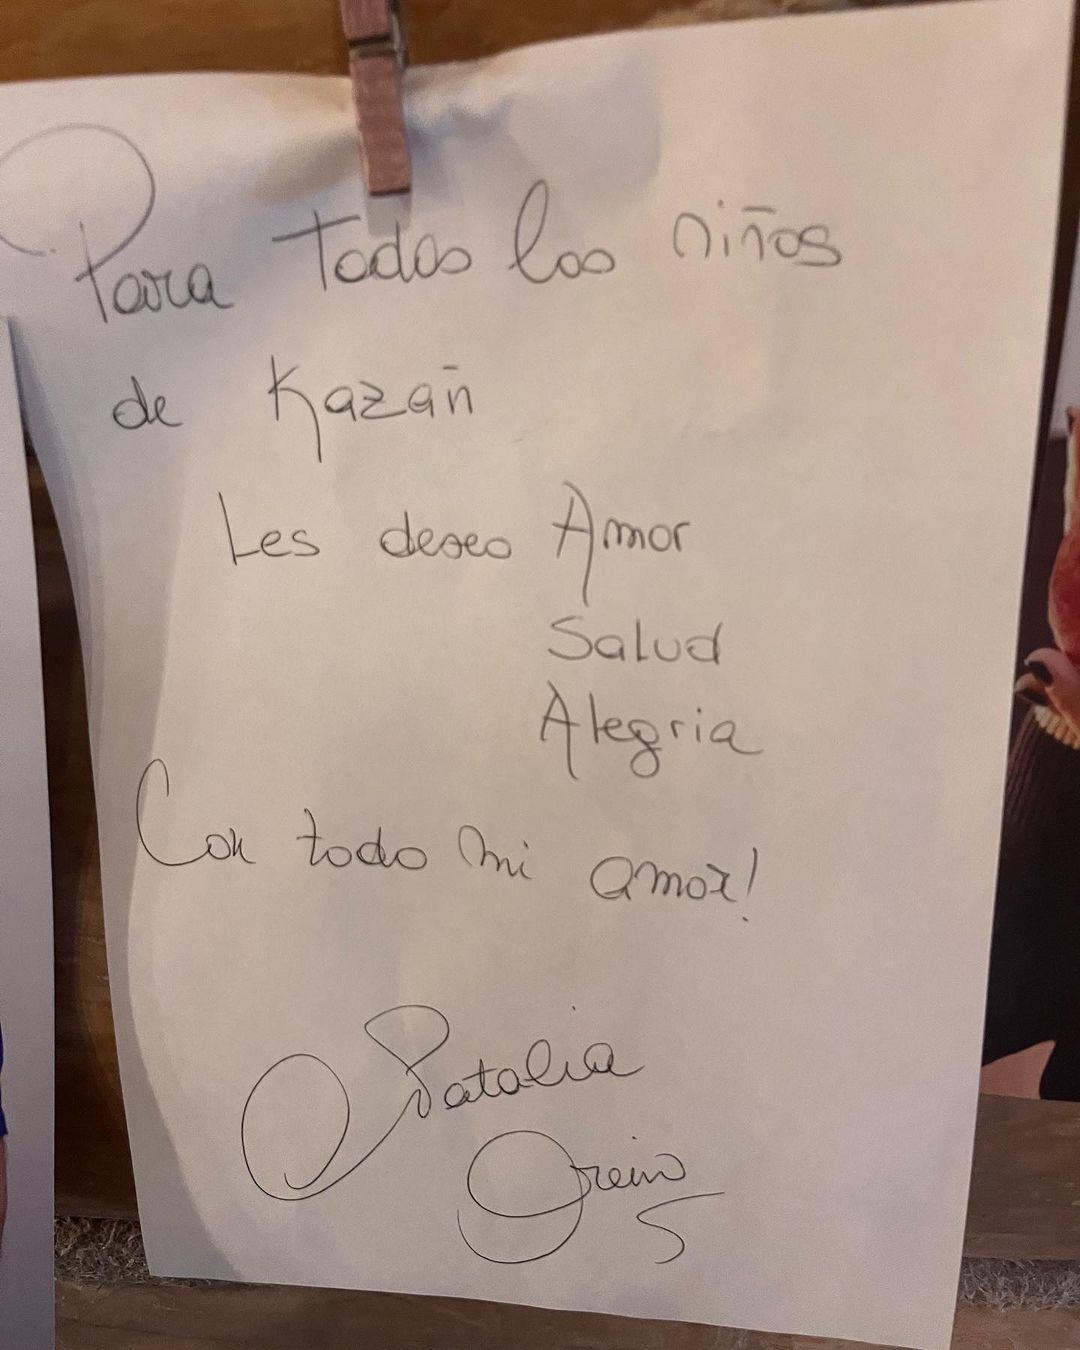 Para todos los niños
de Kazañ
Les deseo Amor
Salud
Alegria
Con todo mi amor!
Natalia
Oreiro